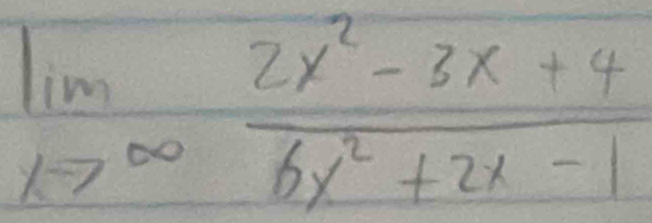 lim x→∞ (2x² - 3x + 4) / (6x² + 2x - 1)